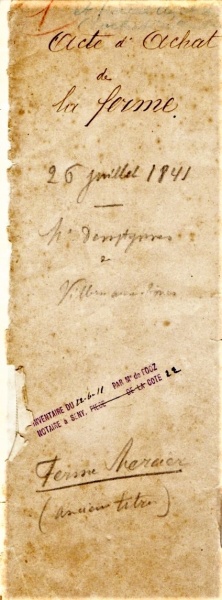 Acte d'Achat
de
la ferme.
26 juillet 1841
à
INVENTAIRE DU 22-6-11 PAR Me de FOOZ
NOTAIRE à SENY. PIECE DE LA COTE 22
Ferme Mercier
(ancien titre)